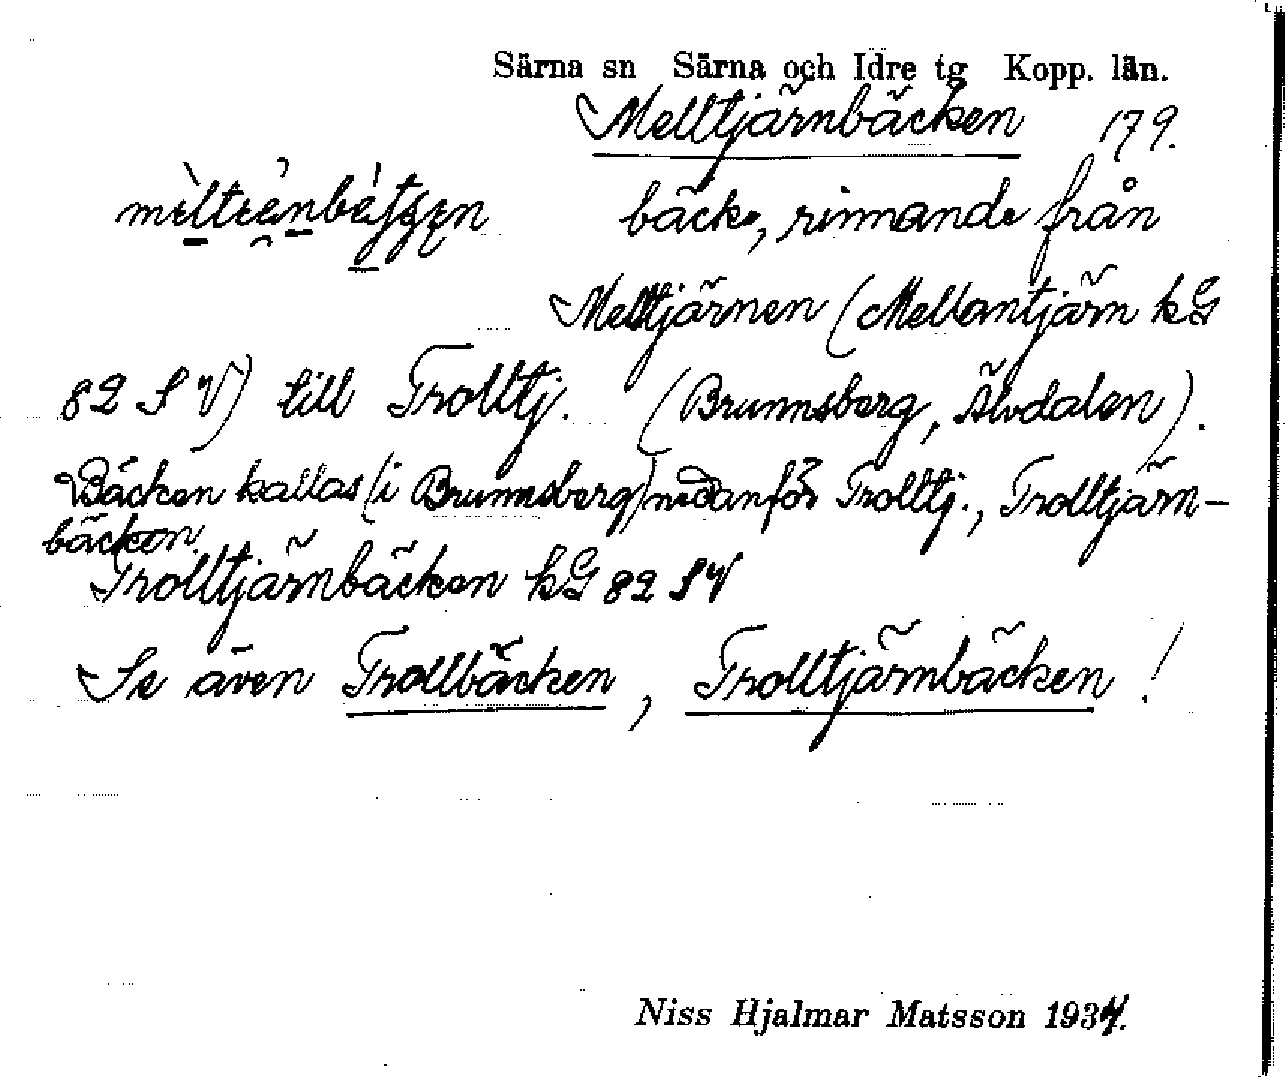 Särna sn Särna och Idre tg Kopp. län.
Melltjärnbäcken 179.
bäck, rinnande från
Melltjärnen (Mellantjärn kG
82 SV) till Trolltj. (Brunnsberg, Älvdalen).
Bäcken kallas (i Brunnsberg) nedanför Trolltj., Trolltjärn-
bäcken.
Trolltjärnbäcken kG 82 SV
Se även Trollbäcken, Trolltjärnbäcken!
Niss Hjalmar Matsson 1934.